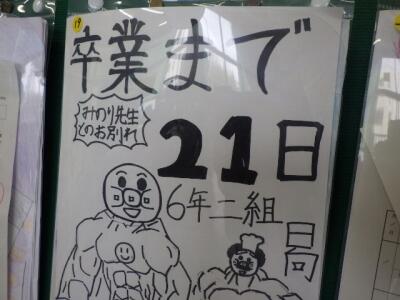 19
卒業まで
みのり先生
とのお別れ
21日
6年二組
日向